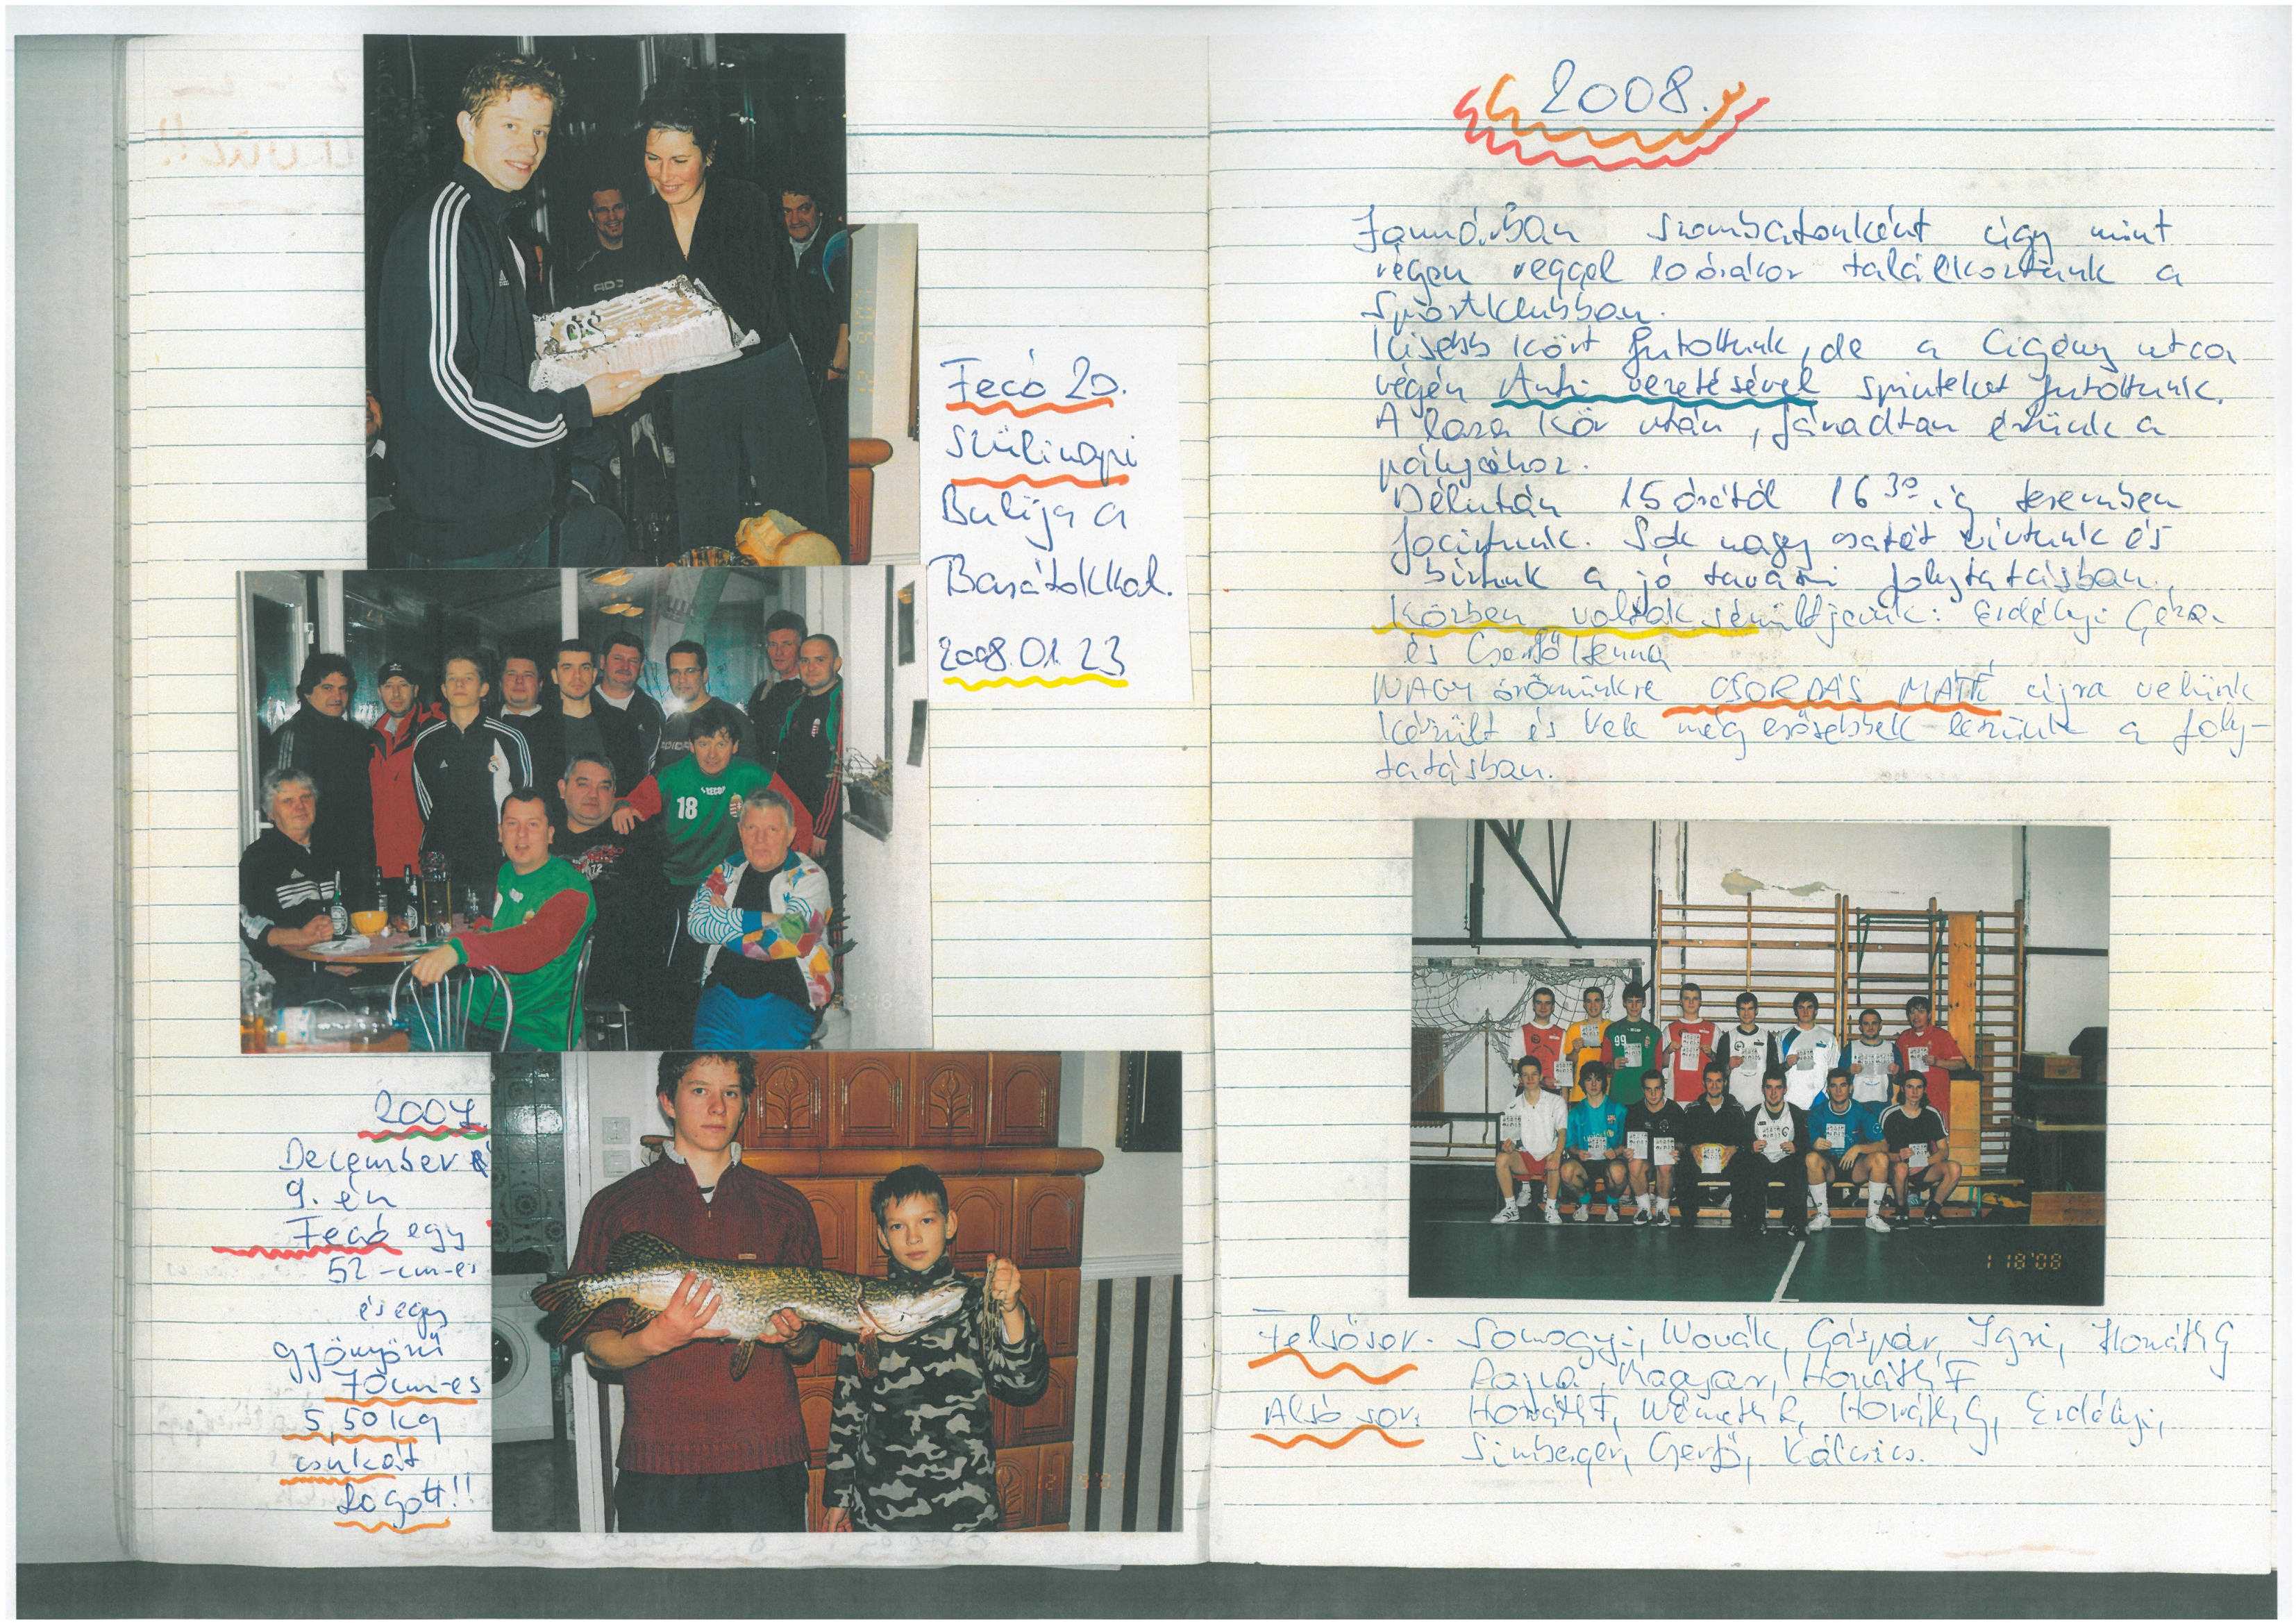 Fecó 20.
Szülinapi
Bulija a
Barátokkal.
2008.01.23
18
2007.
December
9. én
Fecó egy
52-cm-es
és egy
gyönyörű
70cm-es
5,50 kg
csukát
fogott!!
2008.
Januárban szombatonként úgy mint
régen reggel 10 órakor találkoztunk a
Sportklubban.
Kisebb kört futottunk, de a Cigány utca
végén Anti vezetésével sprinteket futottunk.
A laza kör után, fáradtan értünk a
pályához.
Délután 15 órától 16 30 ig teremben
fociztunk. Sok nagy csatát vívtunk és
bíztunk a jó tavaszi folytatásban.
Közben voltak sérültjeink: Erdélyi Géza
és Cserfő
NAGY örömünkre CSORDÁS MÁTÉ újra velünk
készült és Vele még erősebbek leszünk a foly-
tatásban.
99
1 18'08
Felsősor. Somogyi, Novák, Gáspár, Igri, Horváth G
Horváth F
Alsó sor: Horváth F, Németh R, Horváth G, Erdélyi,
Simberger, Cserfő, Kálcsics.